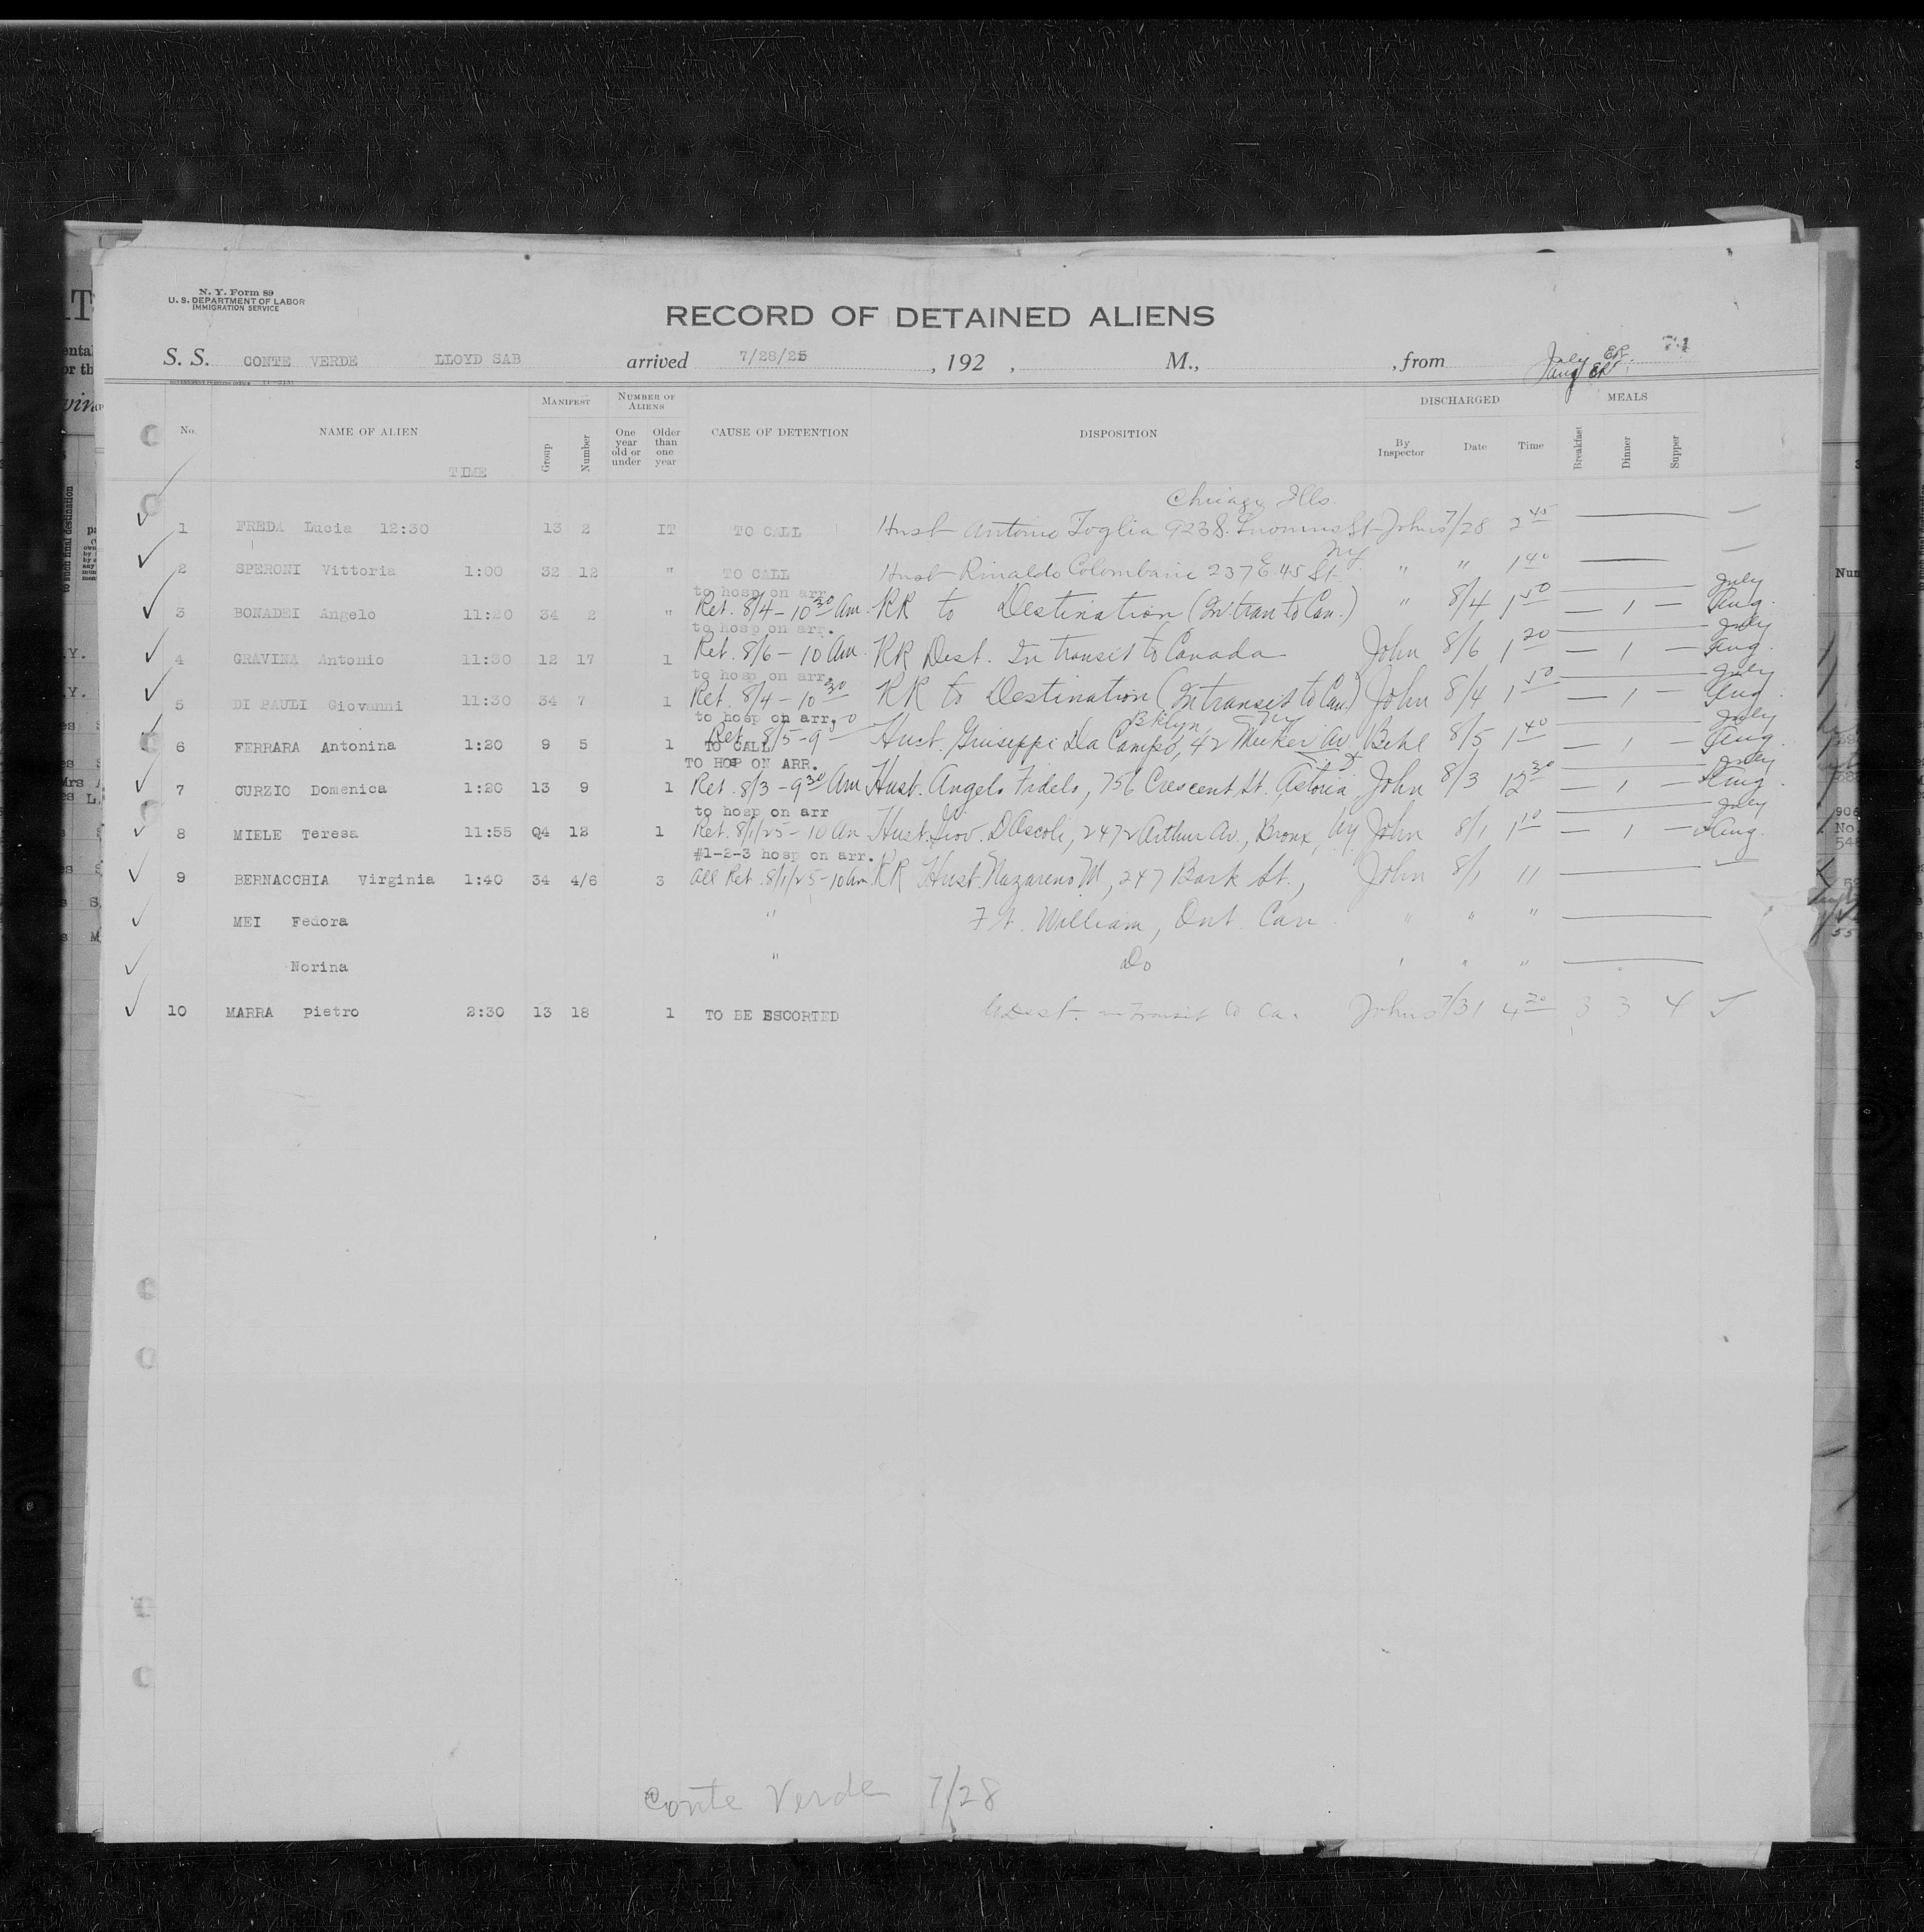 N. Y. Form 89
U. S. DEPARTMENT OF LABOR
IMMIGRATION SERVICE
RECORD OF DETAINED ALIENS
S. S. CONTE VERDE LLOYD SAB arrived 7/28/25 , 192 , M., , from July ER.
Aug ER
MANIFEST NUMBER OF ALIENS DISCHARGED MEALS
No. NAME OF ALIEN TIME Group Number One year old or under Older than one year CAUSE OF DETENTION DISPOSITION By Inspector Date Time Breakfast Dinner Supper
Chicago Ills.
1 FREDA Lucia 12:30 13 2 IT TO CALL Husb Antonio Foglia 923 S. St Johns 7/28 2 45
NY
2 SPERONI Vittoria 1:00 32 12 " TO CALL Husb Rinaldo Colombani 237 E 45 St. " " 1 40
to hosp on arr. July
3 BONADEI Angelo 11:20 34 2 " Ret. 8/4 - 10 30 Am. RR to Destination (In tran to Can.) " 8/4 1 50 — 1 — Aug.
to hosp on arr. July
4 GRAVINA Antonio 11:30 12 17 1 Ret. 8/6 - 10 Am. RR Dest. In transit to Canada John 8/6 1 20 — 1 — Aug.
to hosp on arr. July
5 DI PAULI Giovanni 11:30 34 7 1 Ret. 8/4 - 10 30 RR to Destination (In transit to Can.) John 8/4 1 50 — 1 — Aug
to hosp on arr. Bklyn NY July
6 FERRARA Antonina 1:20 9 5 1 TO CALL Ret. 8/5 - 9 Husb. Giuseppi La Campo, 42 Meeker Av. Behl 8/5 1 40 — 1 — Aug.
TO HOSP ON ARR. July
7 CURZIO Domenica 1:20 13 9 1 Ret. 8/3 - 9 30 Am Husb. Angelo Fidelo, 756 Crescent St. Astoria, John 8/3 12 30 — 1 — Aug.
to hosp on arr July
8 MIELE Teresa 11:55 Q4 12 1 Ret. 8/1/25 - 10 Am Husb. Giov. D'Ascoli, 2472 Arthur Av., Bronx, NY John 8/1 1 10 — 1 — Aug.
#1-2-3 hosp on arr.
9 BERNACCHIA Virginia 1:40 34 4/6 3 All Ret. 8/1/25 - 10 Am RR Husb. Nazareno M, 247 Bark St., John 8/1 11
MEI Fedora " Ft. William, Ont. Can. " " "
Norina " Do " " "
10 MARRA Pietro 2:30 13 18 1 TO BE ESCORTED Dest. in transit to Ca. Johns 7/31 4 20 3 3 4
Conte Verde 7/28